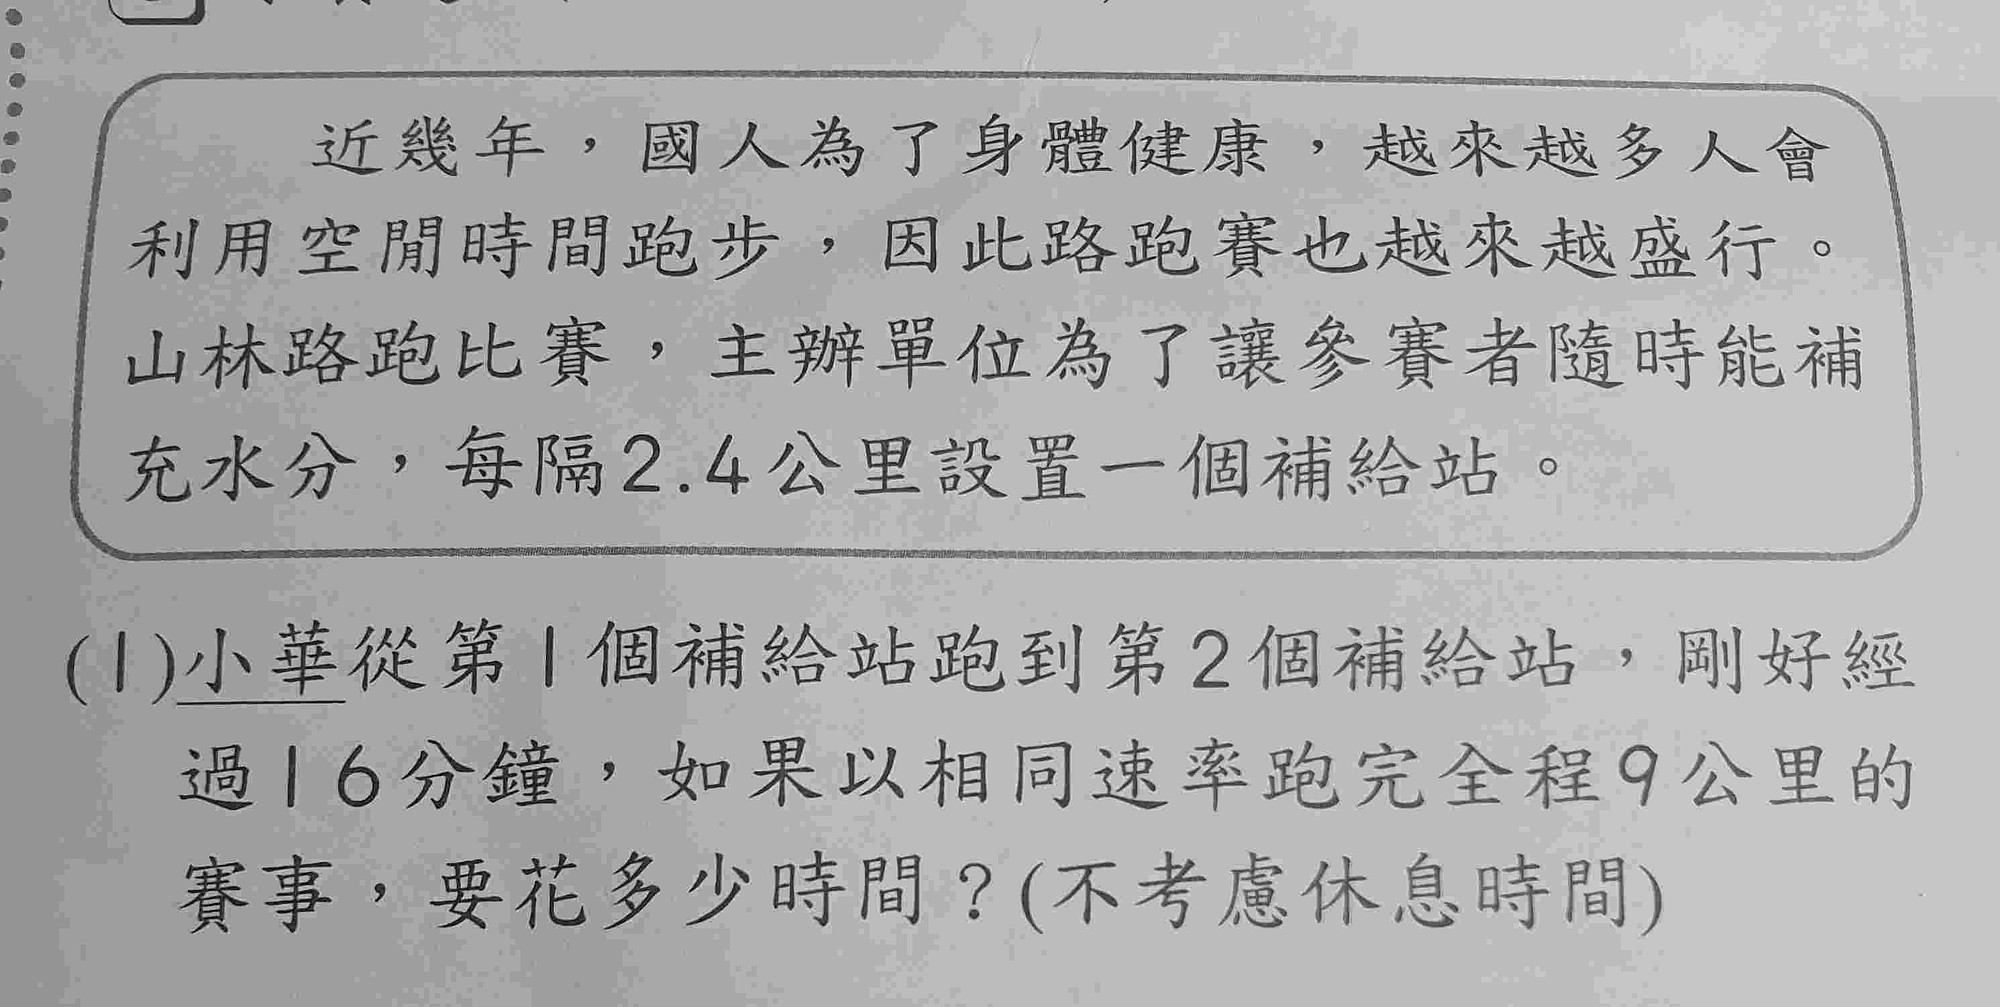 近幾年，國人為了身體健康，越來越多人會
利用空閒時間跑步，因此路跑賽也越來越盛行。
山林路跑比賽，主辦單位為了讓參賽者隨時能補
充水分，每隔2.4公里設置一個補給站。
(1)小華從第1個補給站跑到第2個補給站，剛好經
過16分鐘，如果以相同速率跑完全程9公里的
賽事，要花多少時間？(不考慮休息時間)